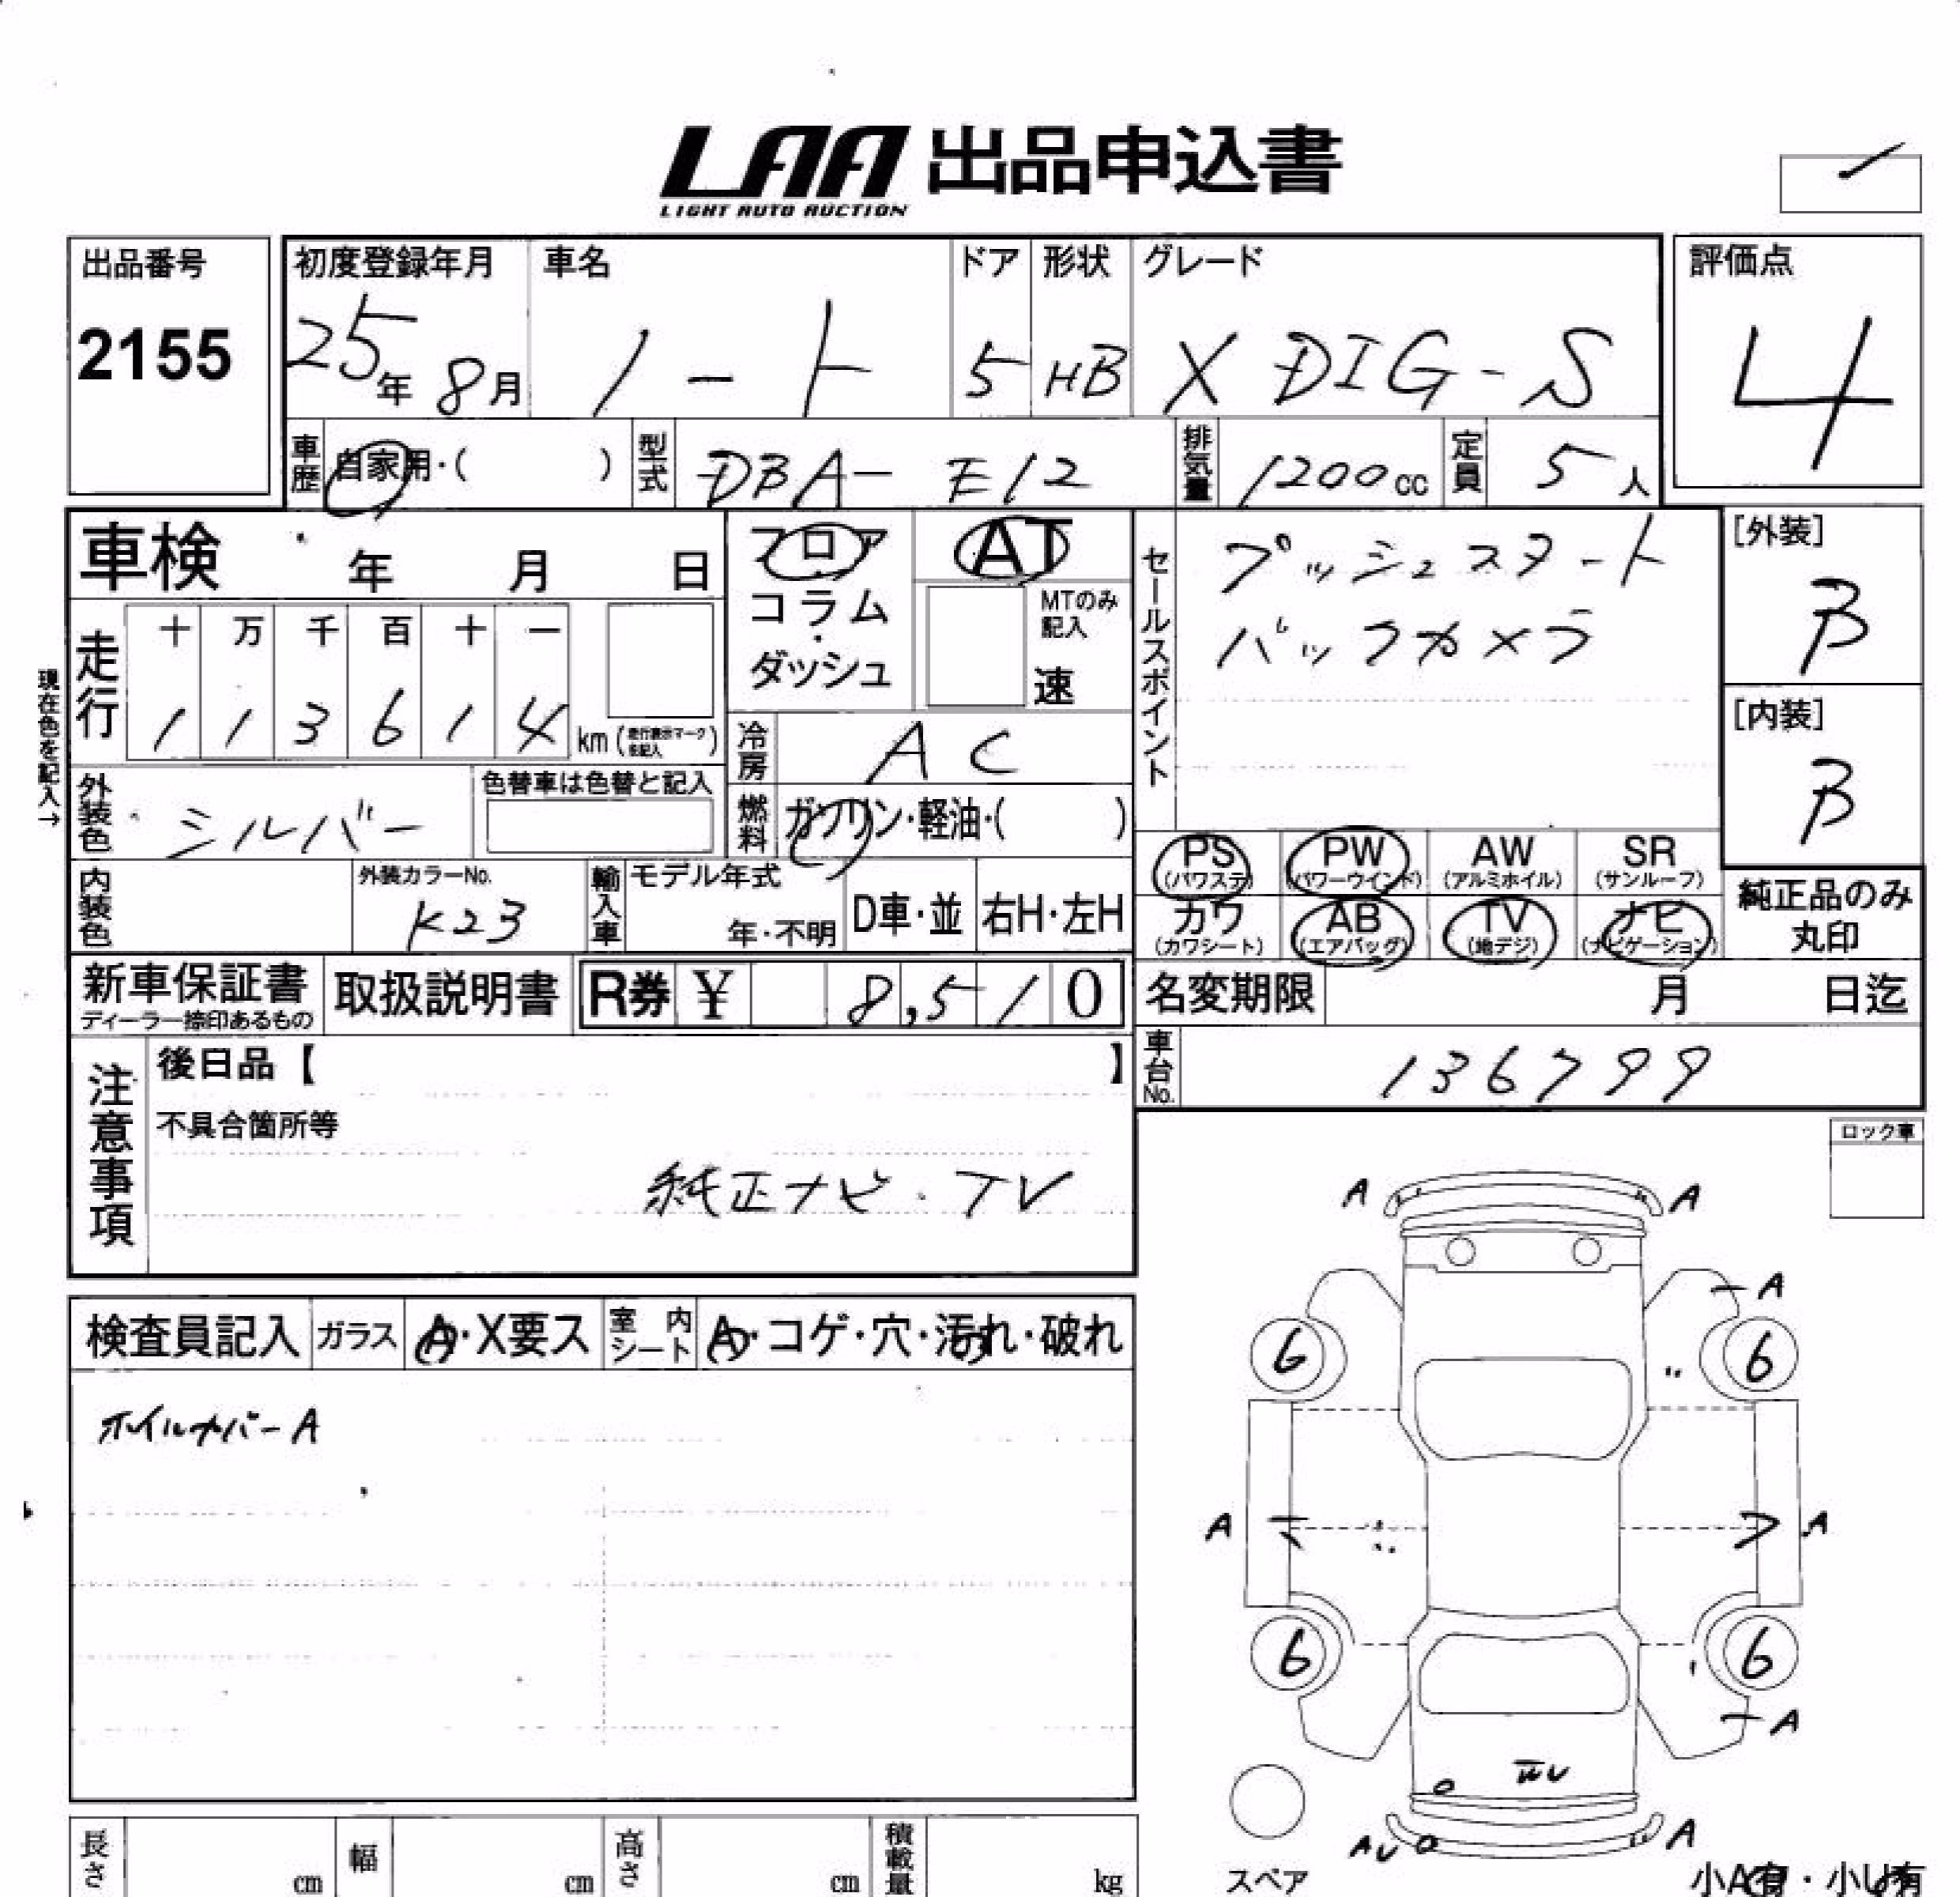 LAA 出品申込書
LIGHT AUTO AUCTION
出品番号
2155
初度登録年月
25年 8月
車名
ノート
ドア
5
形状
HB
グレード
X DIG-S
評価点
4
車歴 自家用・( )
型式 DBA-E12
排気量 1200cc
定員 5人
車検 年 月 日
フロア
コラム
・
ダッシュ
AT
MTのみ
記入
速
現在色を記入→
走行
十 万 千 百 十 一
1 1 3 6 1 4 km (走行表示マーク
を記入)
冷房 AC
外装色 シルバー
色替車は色替と記入
燃料 ガソリン・軽油・( )
内装色
外装カラーNo.
K23
輸入車
モデル年式
年・不明
D車・並
右H・左H
セールスポイント
プッシュスタート
バックカメラ
[外装]
B
[内装]
B
PS (パワステ)
PW (パワーウインド)
AW (アルミホイル)
SR (サンルーフ)
カワ (カワシート)
AB (エアバッグ)
TV (地デジ)
ナビ (ナビゲーション)
純正品のみ
丸印
新車保証書
ディーラー捺印あるもの
取扱説明書
R券 ¥ 8,510
名変期限 月 日迄
車台No. 136799
注意事項
後日品【 】
不具合箇所等
純正ナビ・TV
ロック車
検査員記入
ガラス A・X要ス
室内シート A・コゲ・穴・汚れ・破れ
ホイルカバーA
A A
A
6 6
A A
6 6
A
AU A
スペア
長さ cm
幅 cm
高さ cm
積載量 kg
小A有・小U有